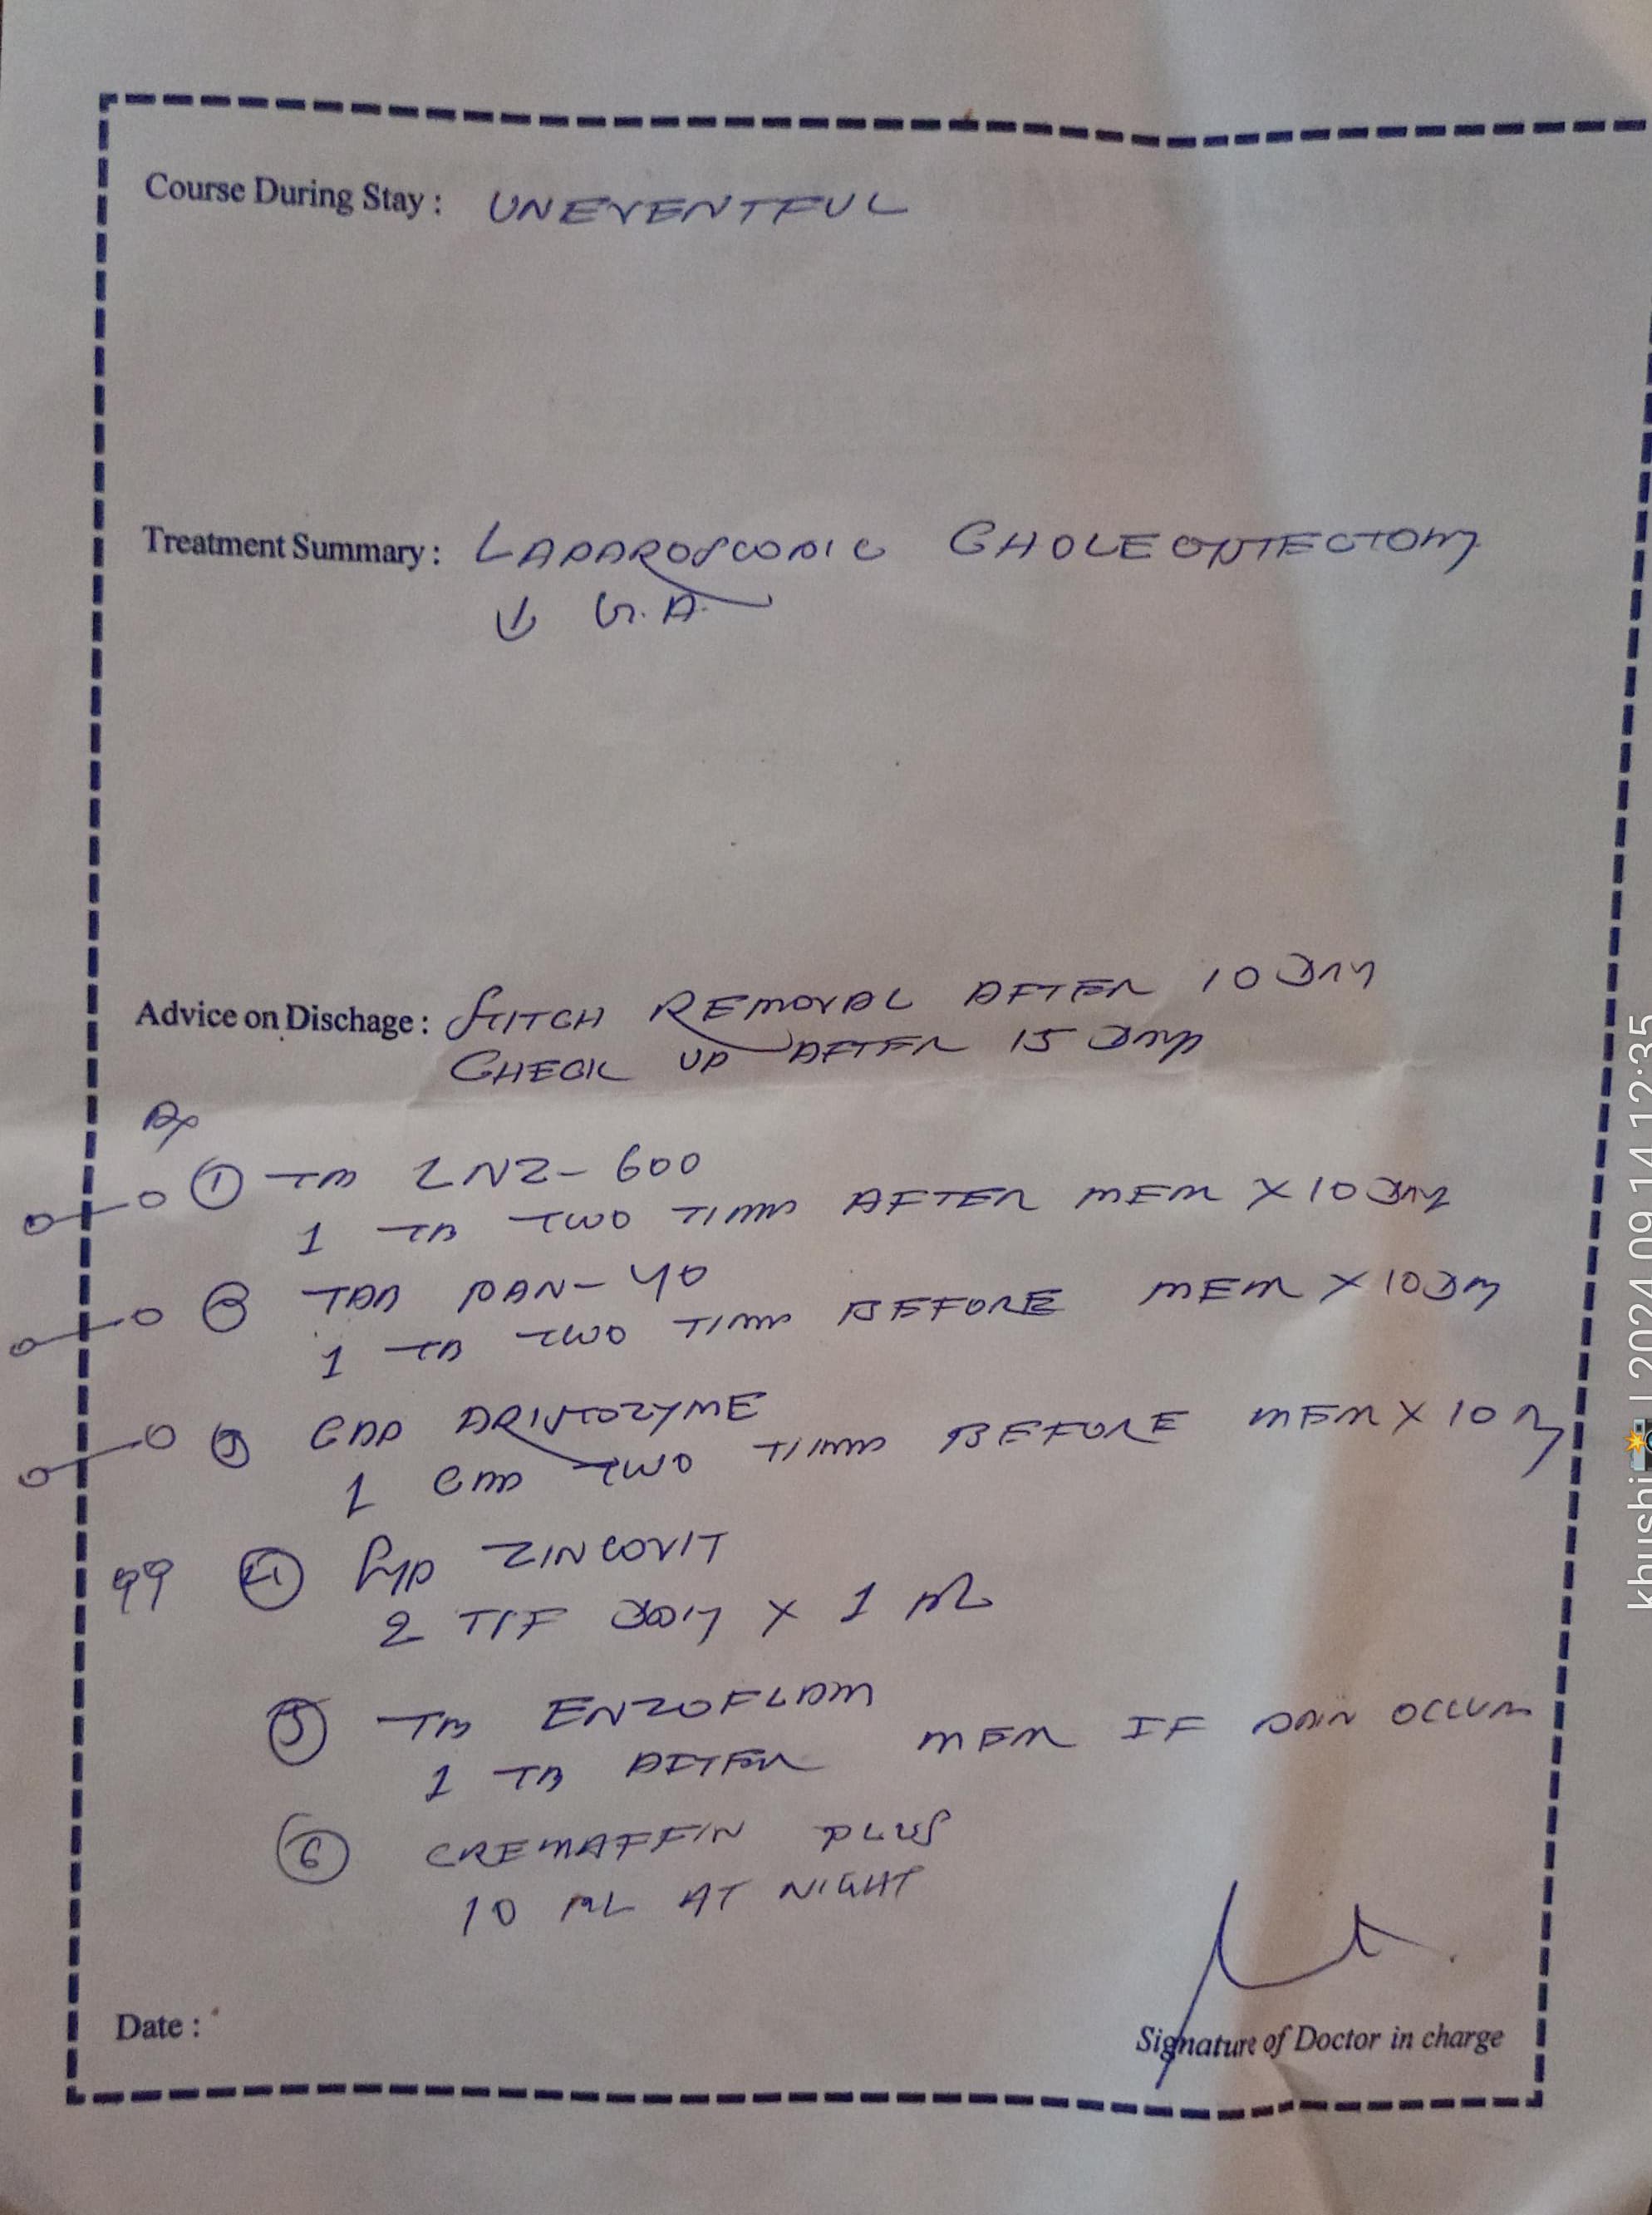 Course During Stay : UNEVENTFUL
Treatment Summary : LAPAROSCOPIC CHOLECYSTECTOMY
↓ G.A.
Advice on Dischage : STITCH REMOVAL AFTER 10 DAY
CHECK UP AFTER 15 DAYS
Rx
① TAB LNZ- 600
1 TAB TWO TIMES AFTER MEAL X 10 DAYS
② TAB PAN- 40
1 TAB TWO TIMES BEFORE MEAL X 10 DAY
③ CAP ARISTOZYME
1 CAP TWO TIMES BEFORE MEAL X 10
④ SYP ZINCOVIT
2 TSF DAILY X 1
⑤ TAB ENZOFLAM
1 TAB AFTER MEAL IF PAIN OCCUR
⑥ CREMAFFIN PLUS
10 ML AT NIGHT
Date :
Signature of Doctor in charge
khushi | 2024.09.14 12:35